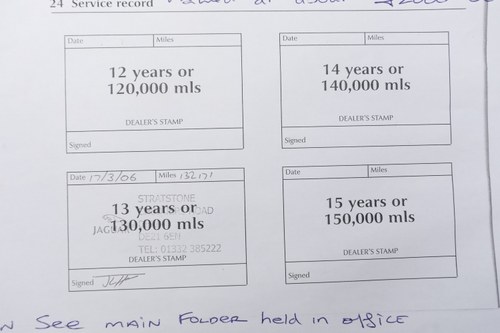 24 Service record
Date Miles
12 years or
120,000 mls
DEALER'S STAMP
Signed
Date Miles
14 years or
140,000 mls
DEALER'S STAMP
Signed
Date 17/3/06 Miles 132171
STRATSTONE
13 years or
130,000 mls
JAGUAR
DE21 6EH
TEL: 01332 385222
DEALER'S STAMP
Signed
Date Miles
15 years or
150,000 mls
DEALER'S STAMP
Signed
SEE MAIN FOLDER held in office